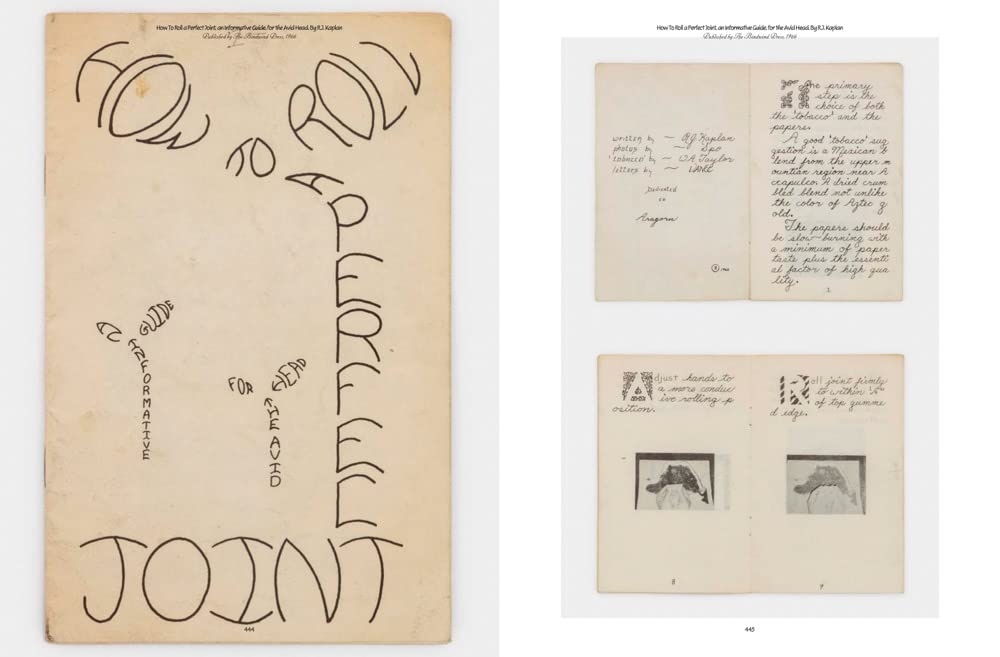 How To Roll a Perfect Joint, an Informative Guide, for the Avid Head. By R.J. Kaplan
Published by The Bindweed Press, 1966
HOW
TO
ROLL
A
PERFECT
JOINT
AN
INFORMATIVE
GUIDE
FOR
THE AVID
HEAD
444
How To Roll a Perfect Joint, an Informative Guide, for the Avid Head. By R.J. Kaplan
Published by The Bindweed Press, 1966
written by — R.J. Kaplan
photos by — Spo
'tobacco' by — W.A. Taylor
letters by —
Dedicated
to
Aragorn
The primary
step is the
choice of both
the 'tobacco' and the
papers.
A good 'tobacco' sug
gestion is a Mexican b
lend from the upper m
ountian region near A
ccapulco. A dried crum
bled blend not unlike
the color of Aztec g
old.
The papers should
be slow-burning with
a minimum of paper
taste plus the essenti
al factor of high qua
lity.
1
Adjust hands to
a more conduc
ive rolling p
osition.
8
Roll joint firmly
to within
of top gumme
d edge.
9
445